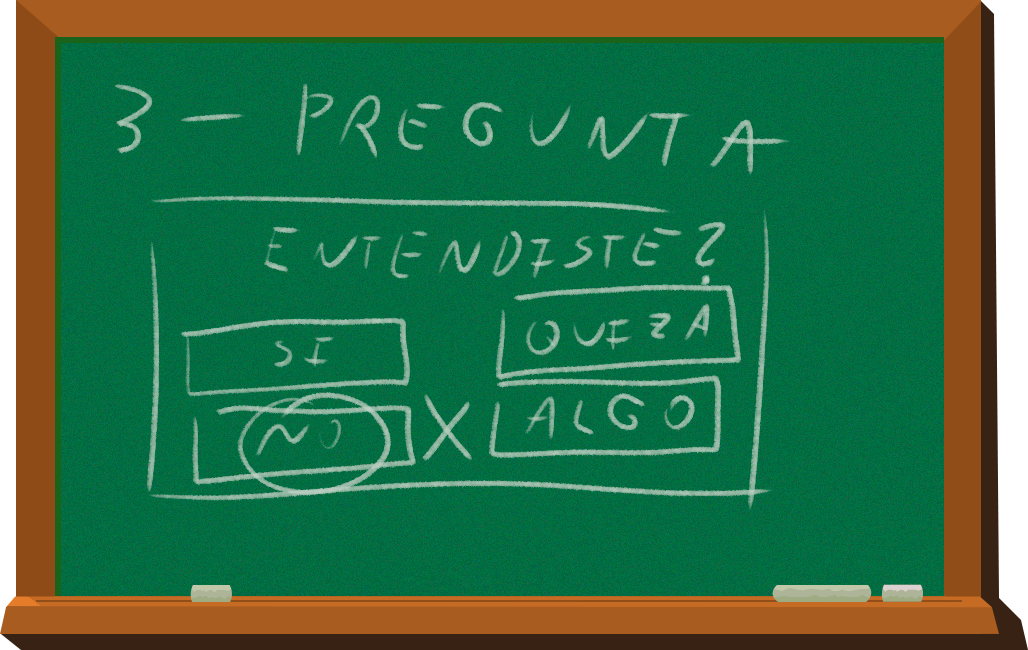 3 - PREGUNTA
ENTENDISTE?
SI
QUIZA
NO X
ALGO